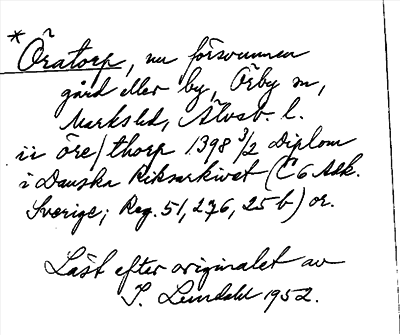 * Öratorp, nu försvunnen
gård eller by, Örby sn,
Marks hd, Älvsb. l.
ii öre/thorp 1398 3/2 Diplom
i Danska Riksarkivet (C6 Adk.
Sverige; Reg. 51, 276, 25 b) or.
Läst efter originalet av
I. Lundahl 1952.